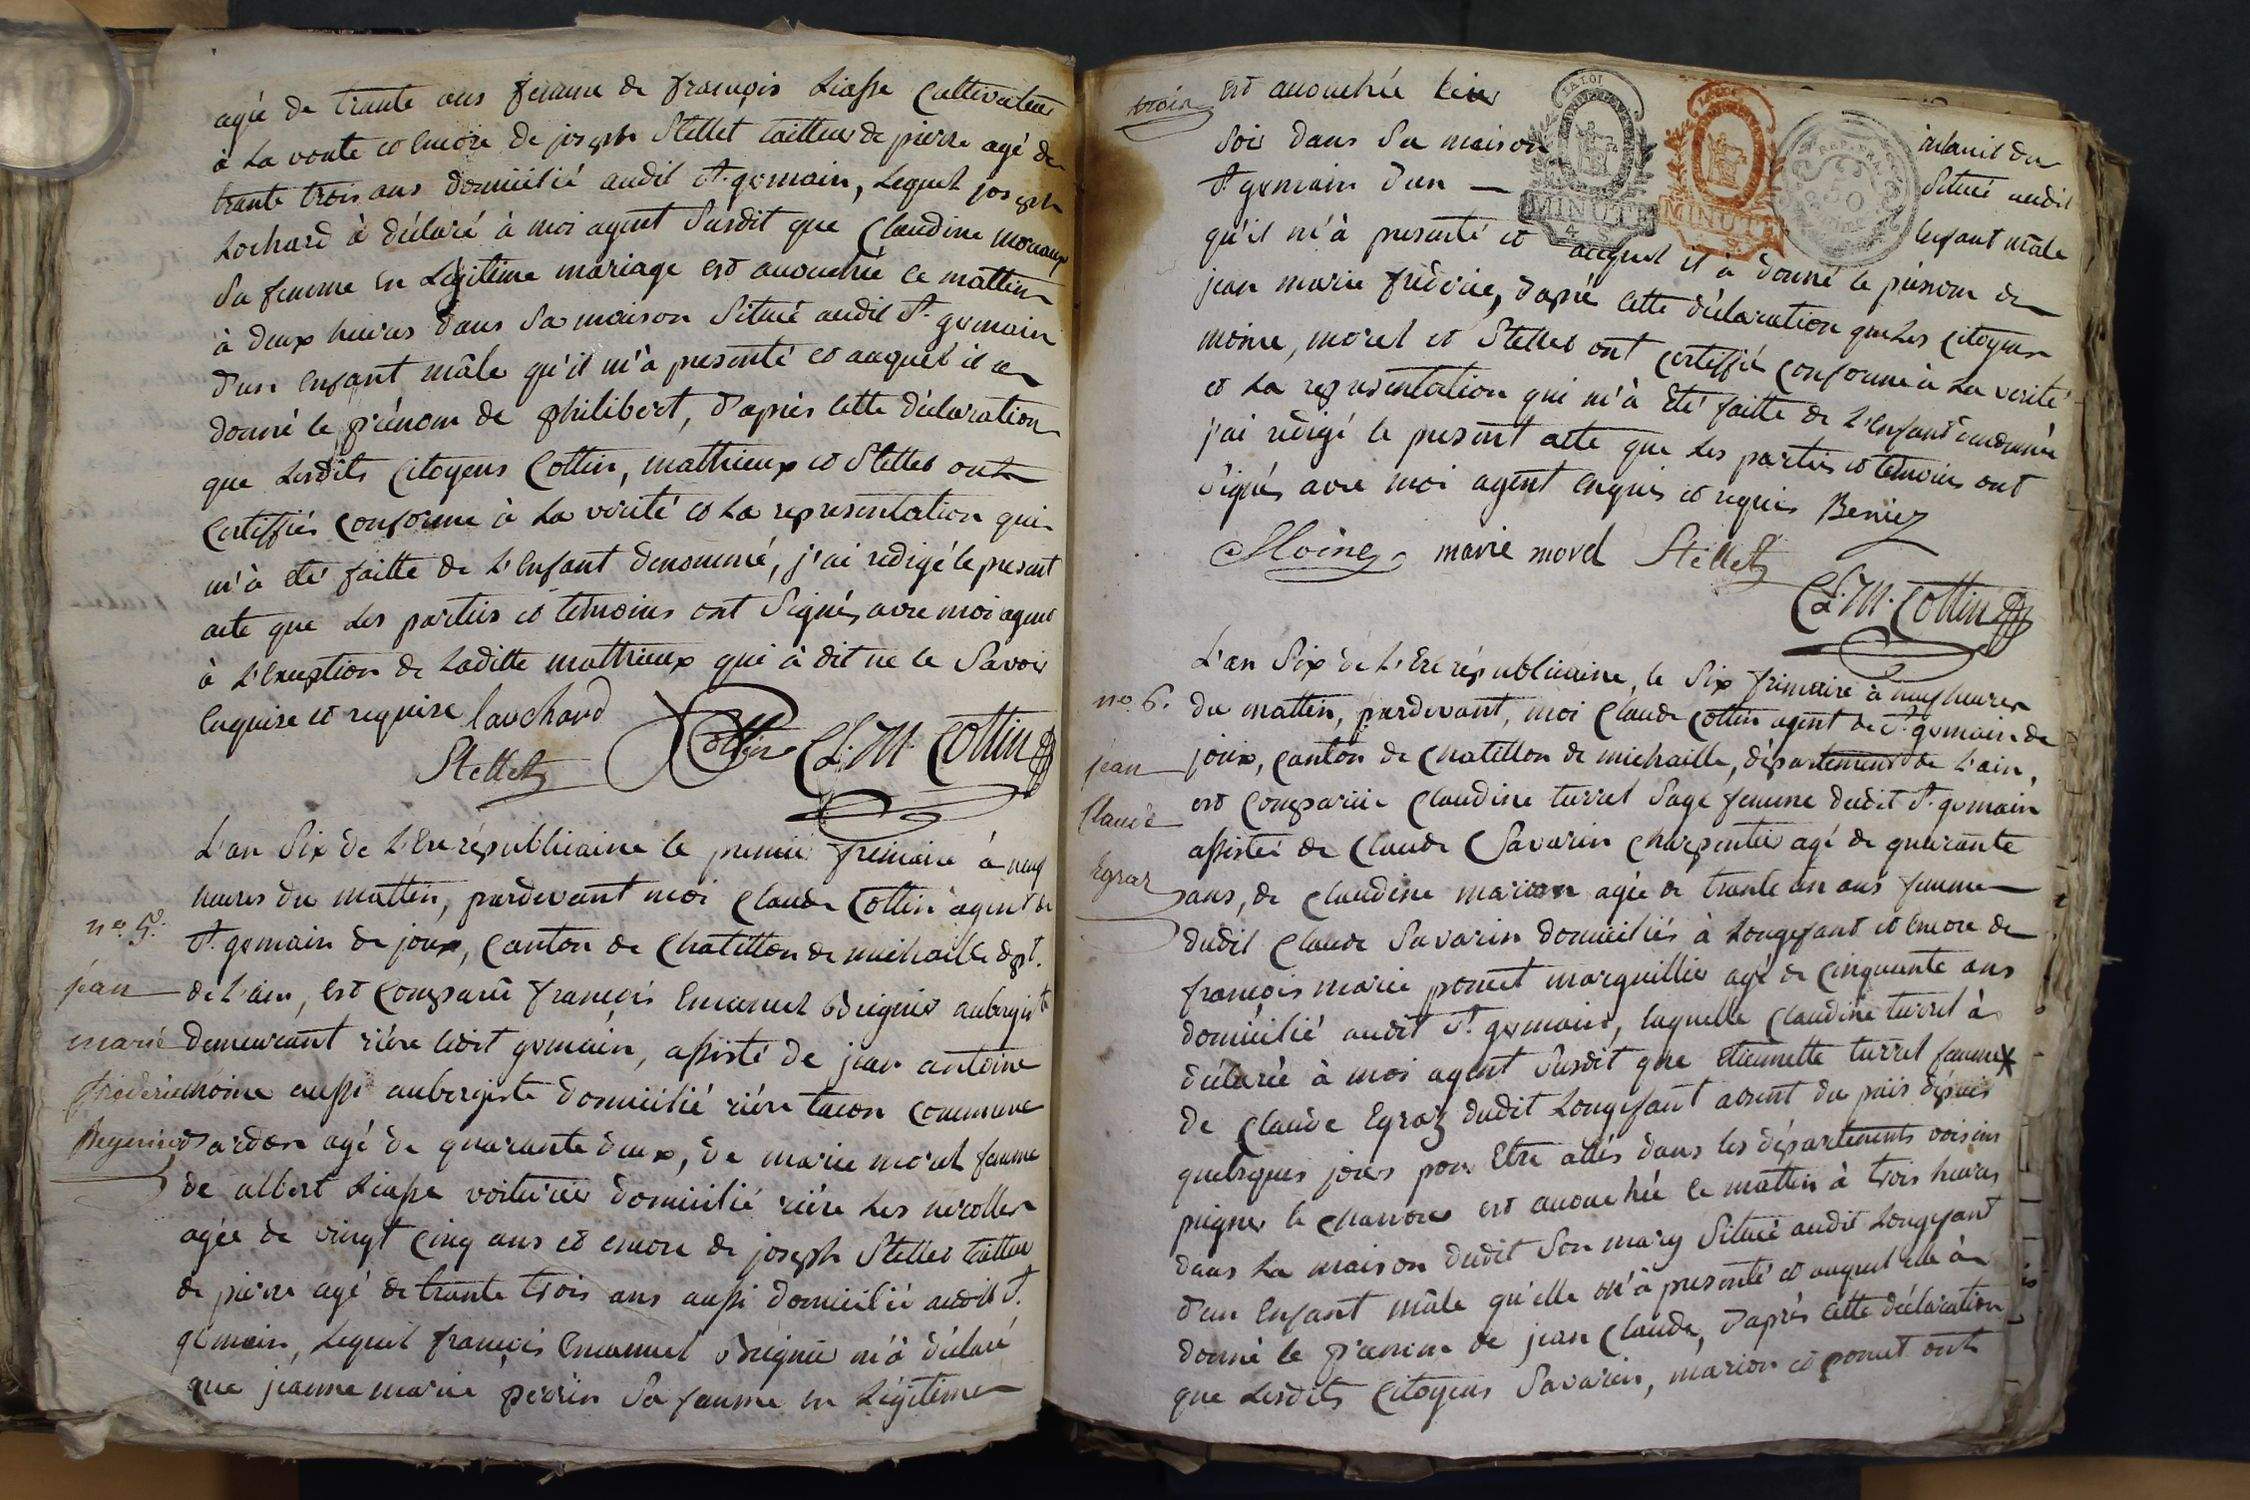 agée de trante ans femme de françois Liasse Cultivateur
à La voute et encore de joseph Stellet tailleur de pierre agé de
trante trois ans domicilié audit St. germain, Lequel joseph
Lochard à déclaré à moi agent Susdit que Claudine
Sa femme en Légitime mariage est auouchée ce mattin
à deux heures dans Sa maison Situé audit St. germain
d'un enfant mâle qu'il m'à presenté et auquel il a
donné le prénom de philibert, d'après cette déclaration
que Lesdits Citoyens Cottin, mathieux et Stellet ont
Certiffiés Conforme à La vérité et La representation qui
m'à été faitte de L'enfant denommé, j'ai redigé le present
acte que Les parties et temoins ont Signés avec moi agent
à L'exeption de Laditte mathieux qui à dit ne le Savoir
enquise et requise Lauchard
Stellet Cottin Cl. M. Cottin
L'an Six de L'Ere républicaine le premier frimaire à neuf
heures du mattin, pardevant moi Claude Cottin agent de
no. 5. St. germain de joux, Canton de Chatillon de michaille dept.
jean de L'ain, est Comparu françois Emanuel Beignier aubergiste
marie demeurant rière ledit germain, assisté de jean antoine
frederic moine aussi aubergiste domicilié rière tacon Commune
d'ardon agé de quarante deux, de marie morel femme
de albert Liasse voiturier domicilié rière Les
agée de vingt Cinq ans et encore de joseph Stellet tailleur
de pierre agé de trante trois ans aussi domicilié audit St.
germain, Lequel françois Emanuel Beignier m'à déclaré
que jeanne marie perrin Sa femme en Légitime
est auouchée hier
Soir dans Sa maison Situé audit
St. germain d'un — enfant mâle
qu'il m'à presenté et auquel il à donné le prénom de
LA LOI
MINUTE
MINUTE
REP. FRA.
50
jean marie frédéric, d'après cette déclaration que Les Citoyens
moine, morel et Stellet ont Certiffiés Conforme à La verité
et La representation qui m'à été faitte de L'enfant
j'ai redigé le present acte que Les parties et temoins ont
Signés avec moi agent enquis et requis
Moine marie morel Stellet
Cl. M. Cottin
L'an Six de L'Ere républicaine, le Six frimaire à neuf heures
no. 6. du mattin, pardevant, moi Claude Cottin agent de St. germain de
jean joux, Canton de Chatillon de michaille, département de L'ain,
Claude est Comparue Claudine turrel Sage femme dudit St. germain
assistée de Claude Savarin Charpentier agé de quarante
Egraz ans, de Claudine marion agée de trante un ans femme
dudit Claude Savarin domiciliés à Longefant et encore de
françois marie ponet marguillier agé de Cinquante ans
domicilié audit St. germain, laquelle Claudine turrel à
déclarée à moi agent Susdit que Etiennette turrel femme
de Claude Egraz dudit Longefant absent du païs dépuis
quelsques jours pour Etre allés dans les départements voisins
peigner le Chanvre est auouchée ce mattin à trois heures
dans La maison dudit Son mary Situé audit Longefant
d'un Enfant mâle qu'elle m'à presenté et auquel elle à
donné le prénom de jean Claude, d'après cette déclaration
que Lesdits Citoyens Savarin, marion et ponet ont